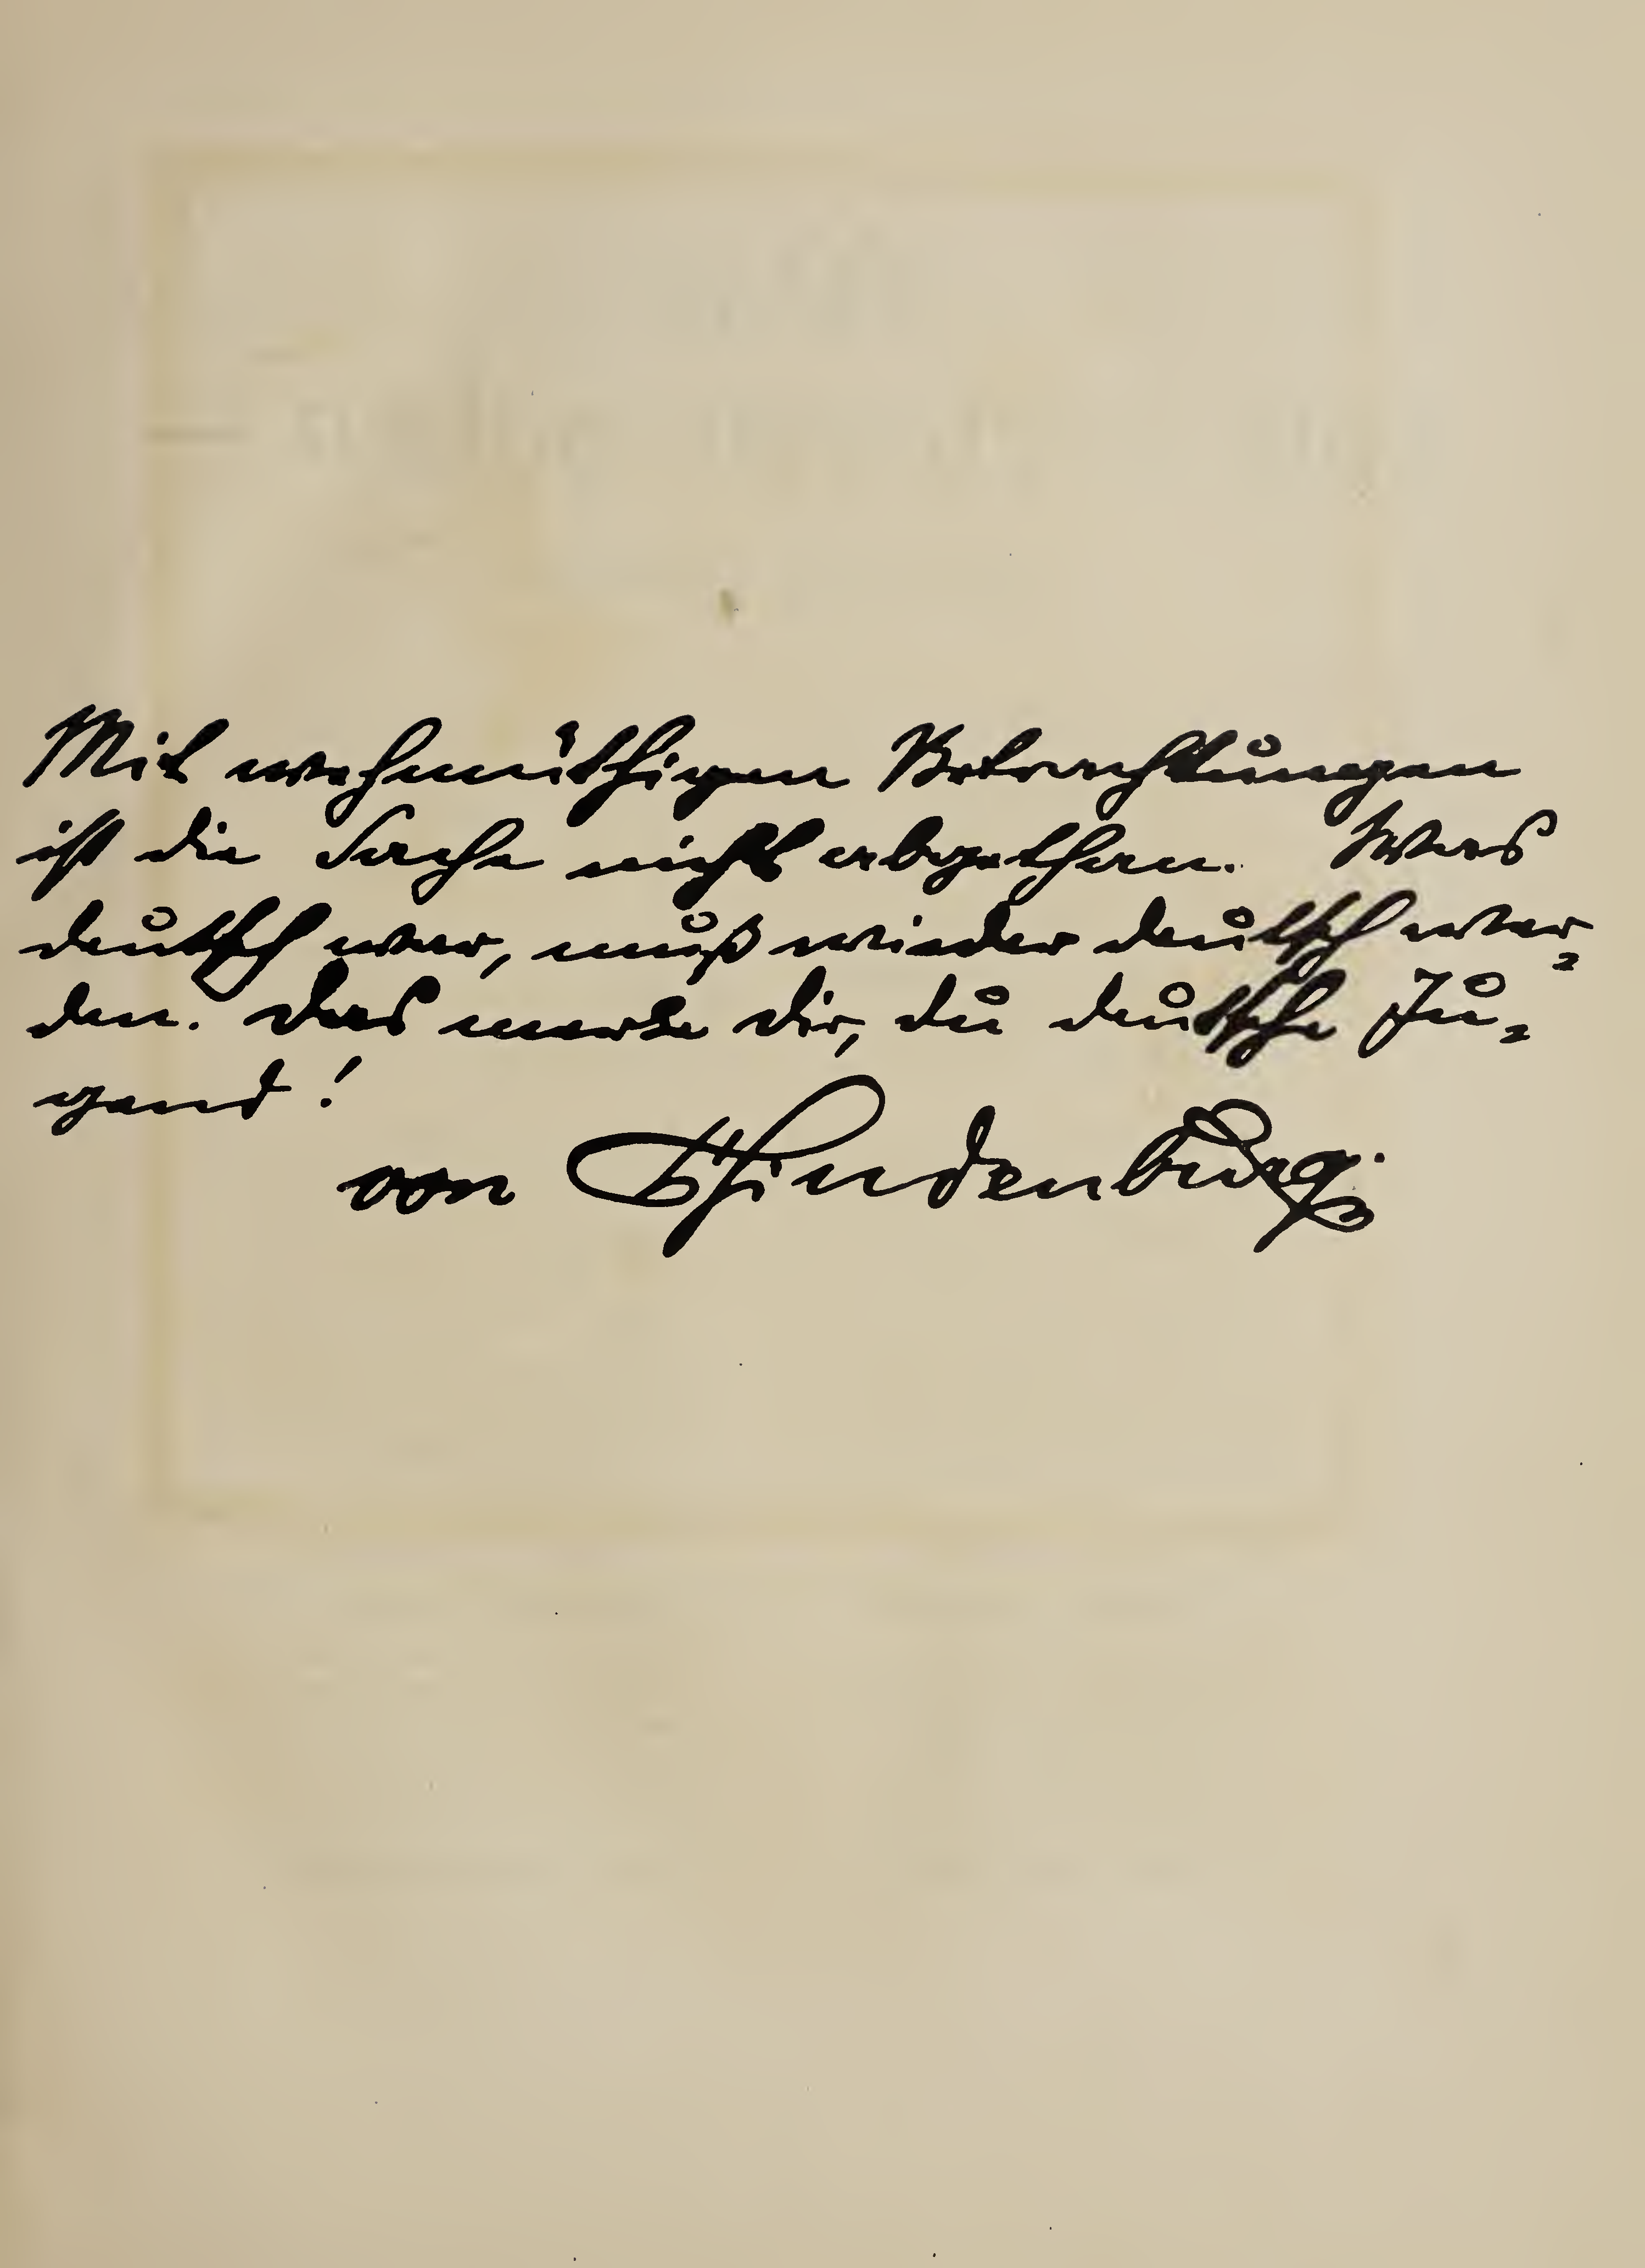 Mit wehmüthigen Betrachtungen
ist die Sache nicht abgethan. Was
deutsch war, muß wieder deutsch wer-
den. Das merke dir, du deutsche Ju-
gend!
von Hindenburg.